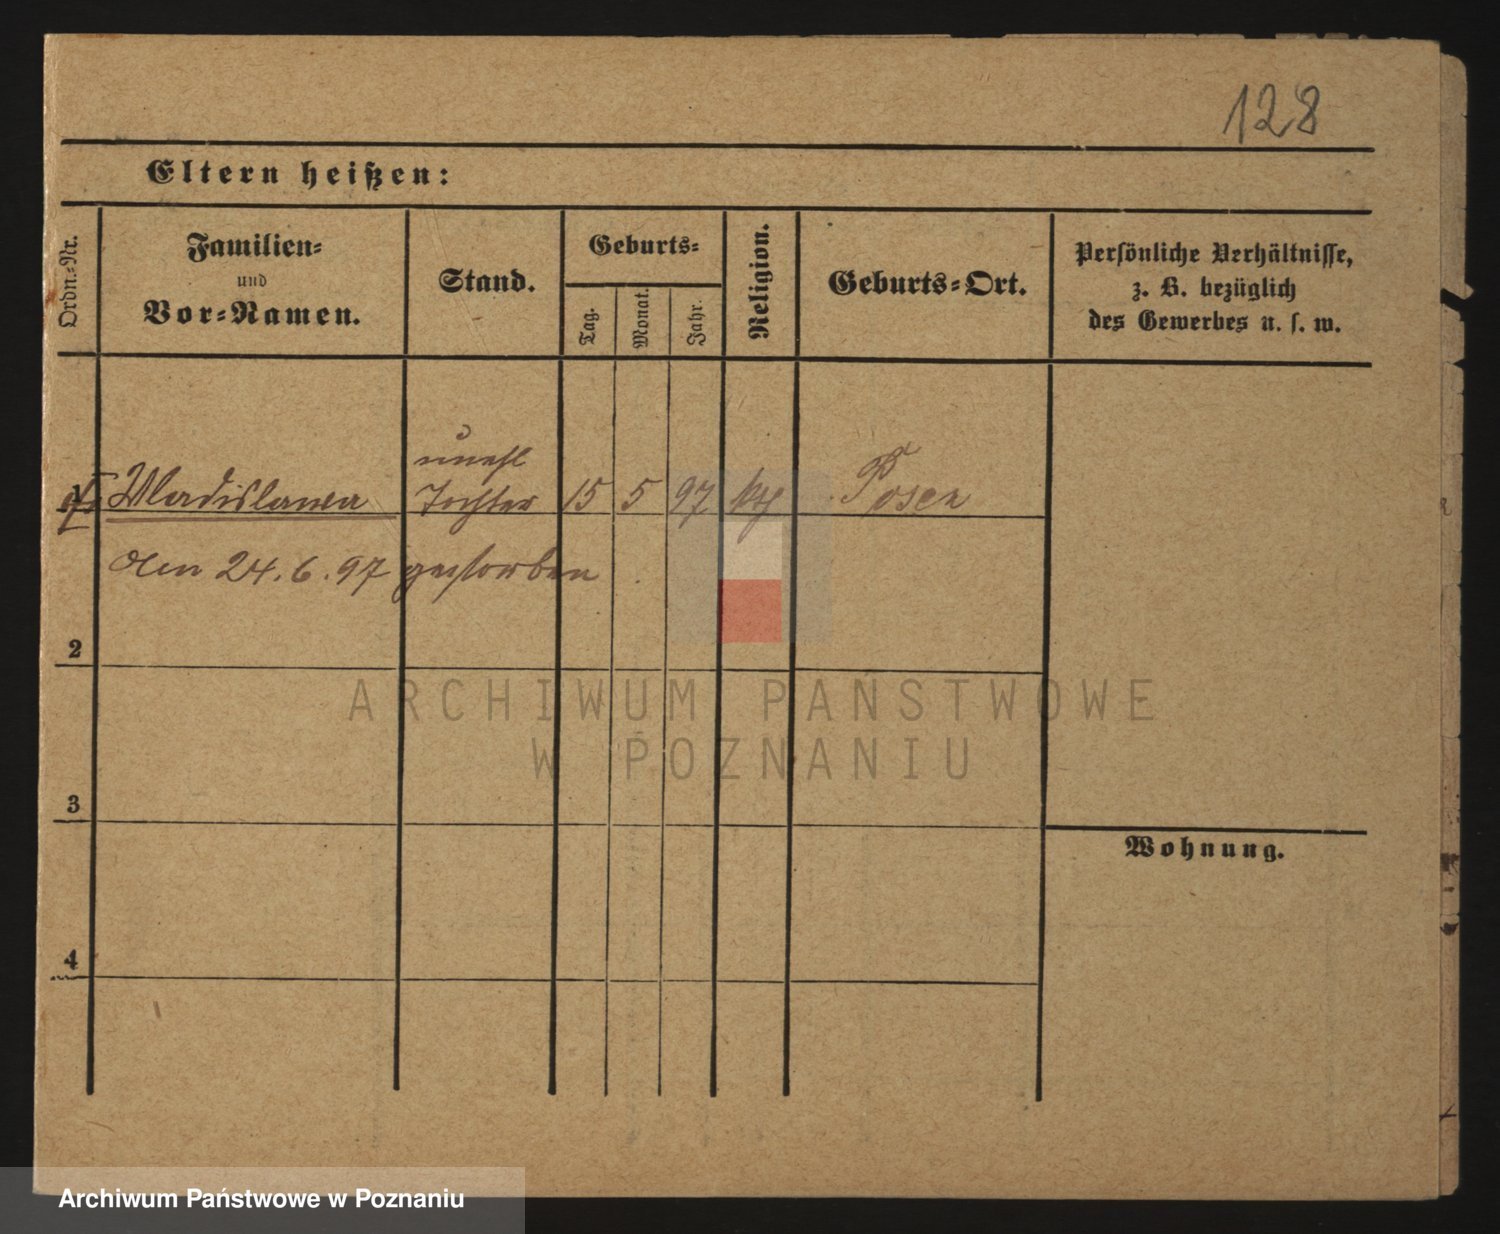 128
Eltern heißen:
Ordn.-Nr.
Familien-
und
Vor-Namen.
Stand.
Geburts-
Tag.
Monat.
Jahr.
Religion.
Geburts-Ort.
Persönliche Verhältnisse,
z. B. bezüglich
des Gewerbes u. s. w.
unehl
1 Wladislawa Tochter 15 5 97 kth Posen
den 24.6.97 gestorben
2
ARCHIWUM PAŃSTWOWE
W POZNANIU
3
Wohnung.
4
Archiwum Państwowe w Poznaniu